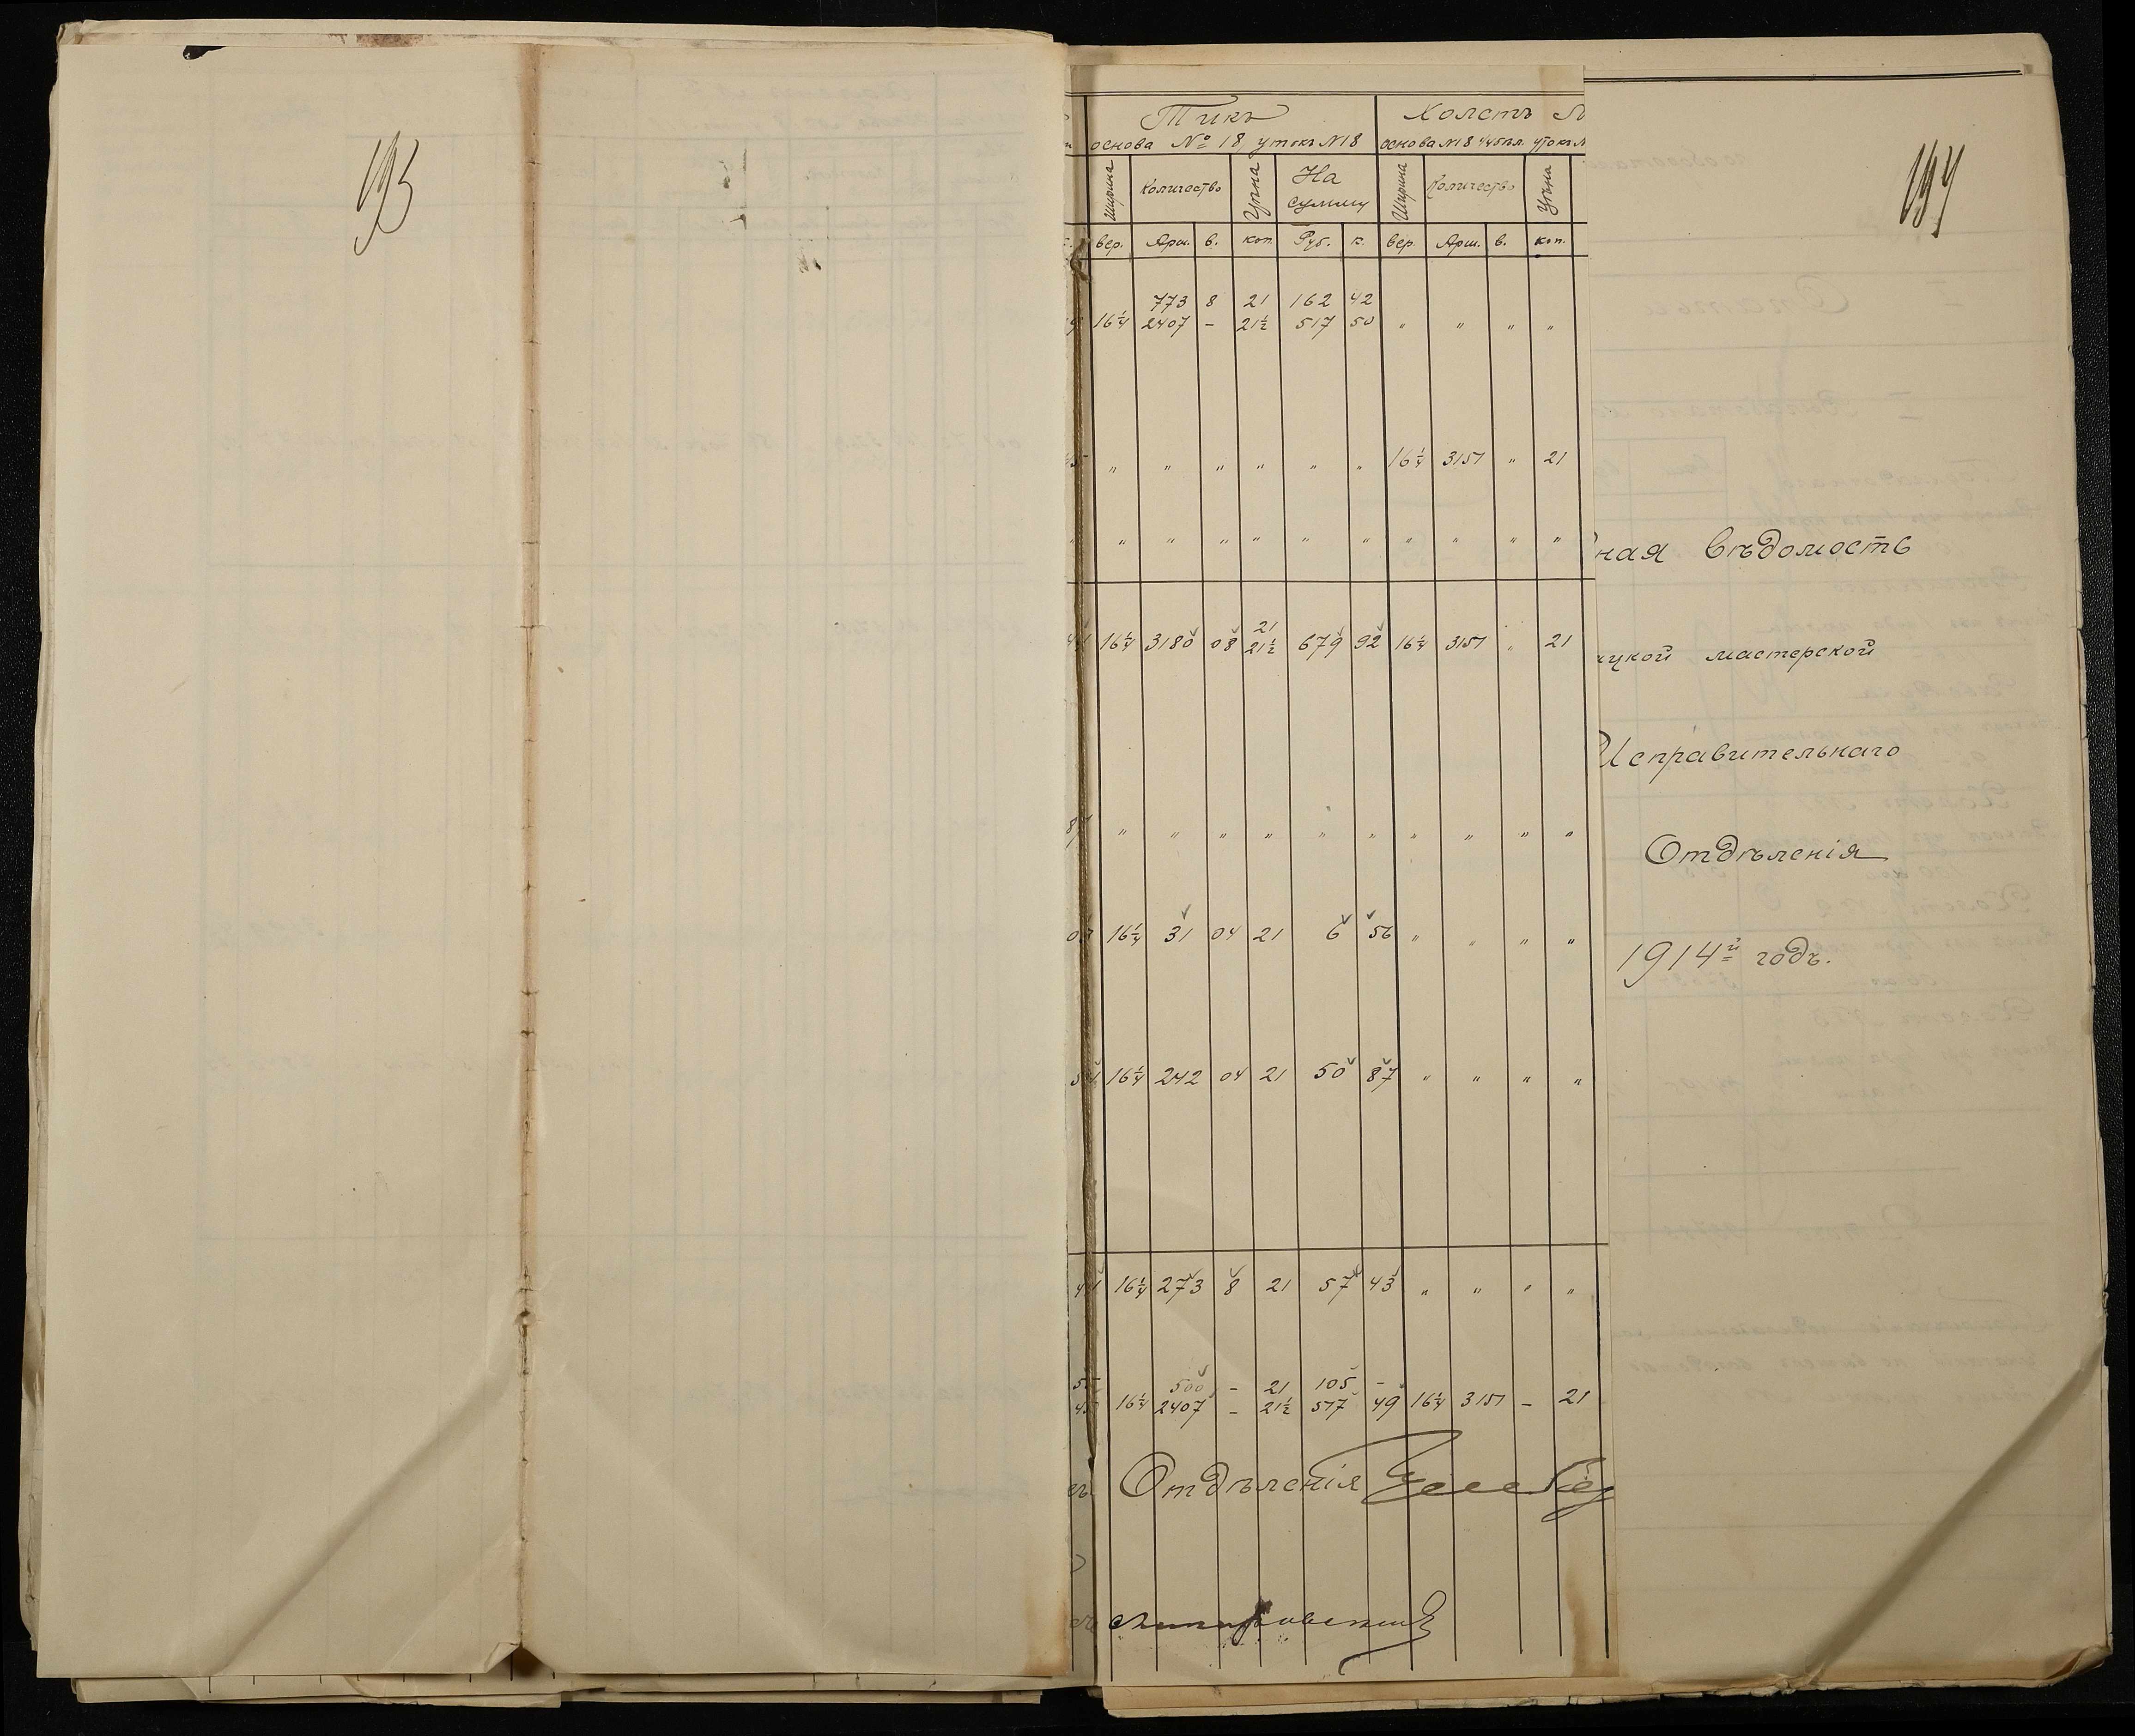 193
Тикъ Холстъ
основа № 18, утокъ №18 основа №18 утокъ
Ширина Количество Цѣна На сумму Ширина Количество Цѣна
вер. Арш. в. коп. Руб. к. вер. Арш. в. коп.
773 8 21 162 42
16¼ 2407 – 21½ 517 50 " " " "
" " " " " " 16¼ 3151 " 21
" " " " " " " " " "
21
16¼ 3180 08 21½ 679 92 16¼ 3151 " 21
" " " " " " " " " "
16¼ 31 04 21 6 56 " " " "
16¼ 242 04 21 50 87 " " " "
16¼ 273 8 21 57 43 " " " "
500 – 21 105 –
16¼ 2407 – 21½ 517 49 16¼ 3151 – 21
Отдѣленія
194
ная вѣдомость
цкой мастерской
Исправительнаго
Отдѣленія
1914й годъ.